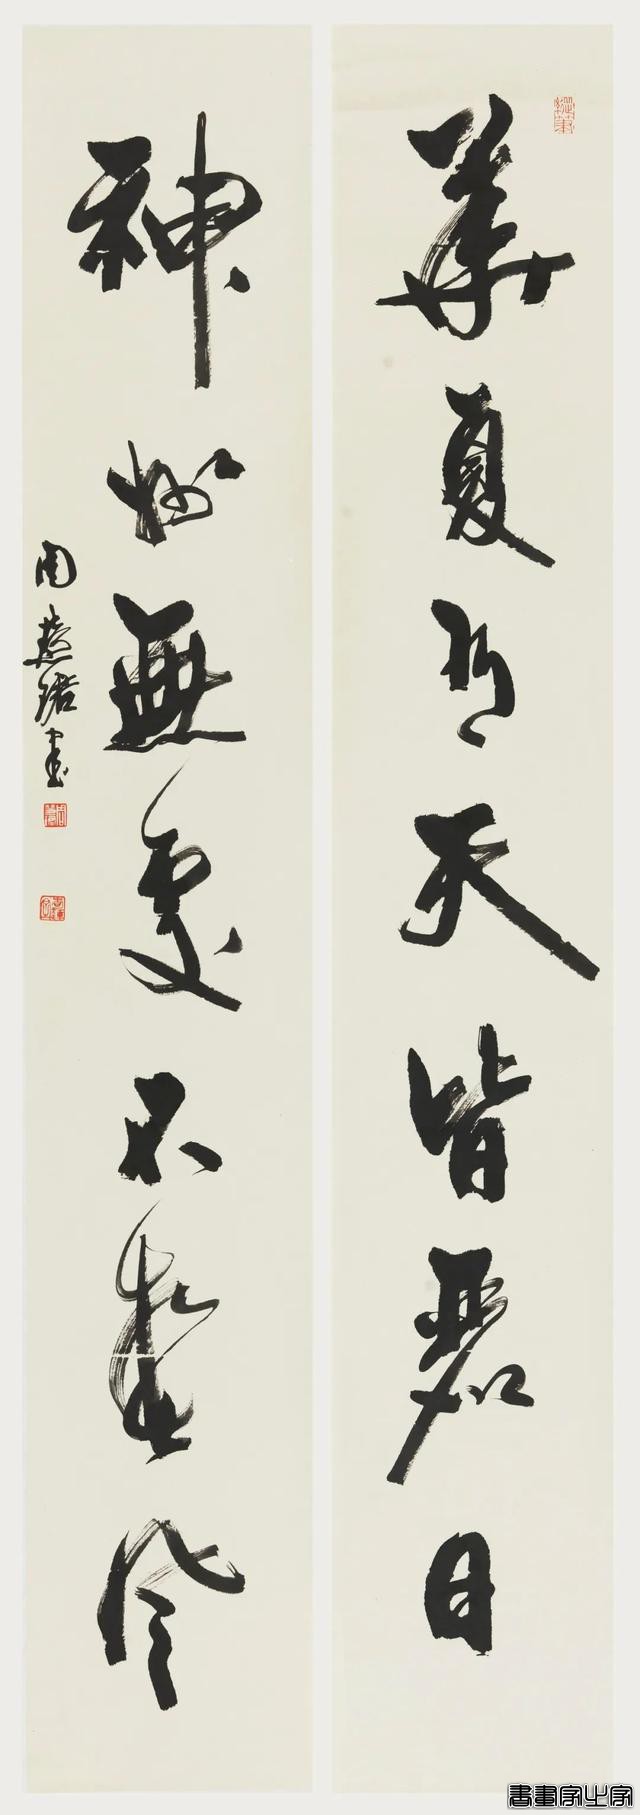 華夏有天皆麗日
神州無處不春風
周慧珺書
書畫家之家